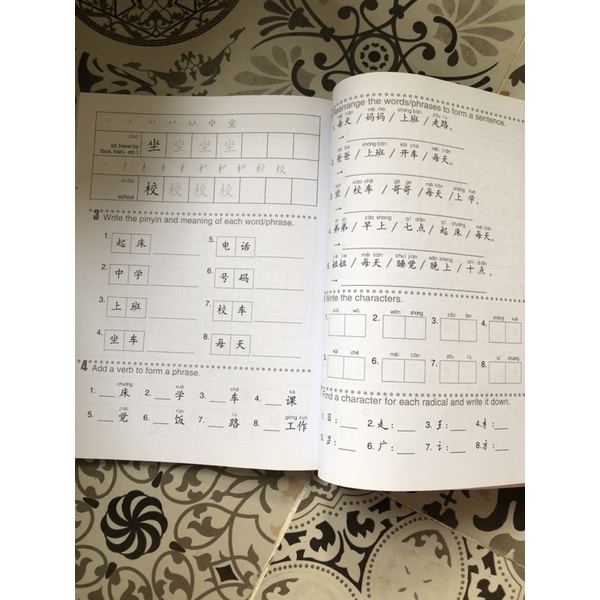 zuò
sit; travel by
(bus, train, etc.)
坐 坐 坐 坐
xiào
school
校 校 校 校
3 Write the pinyin and meaning of each word/phrase.
1. 起床
5. 电话
2. 中学
6. 号码
3. 上班
7. 校车
4. 坐车
8. 每天
4 Add a verb to form a phrase.
chuáng xué chē kè
1. ___床 2. ___学 3. ___车 4. ___课
jiào fàn lù gōng zuò
5. ___觉 6. ___饭 7. ___路 8. ___工作
Rearrange the words/phrases to form a sentence.
měi tiān mā ma shàng bān zǒu lù
1. 每天 / 妈妈 / 上班 / 走路。
→
bà ba shàng bān kāi chē měi tiān
爸爸 / 上班 / 开车 / 每天。
→
xiào chē gē ge měi tiān shàng xué
坐 / 校车 / 哥哥 / 每天 / 上学。
→
zǎo shang qī diǎn qǐ chuáng měi tiān
弟弟 / 早上 / 七点 / 起床 / 每天。
→
měi tiān shuì jiào wǎn shang shí diǎn
姐姐 / 每天 / 睡觉 / 晚上 / 十点。
→
Write the characters.
wǔ wǎn shang zǎo fàn shàng xué
2. 3. 4.
chē měi tiān zǒu lù qǐ chuáng
6. 7. 8.
Find a character for each radical and write it down.
1. 日: ___ 2. 走: ___ 3. 王: ___ 4. 木: ___
6. 广: ___ 7. 讠: ___ 8. 方: ___